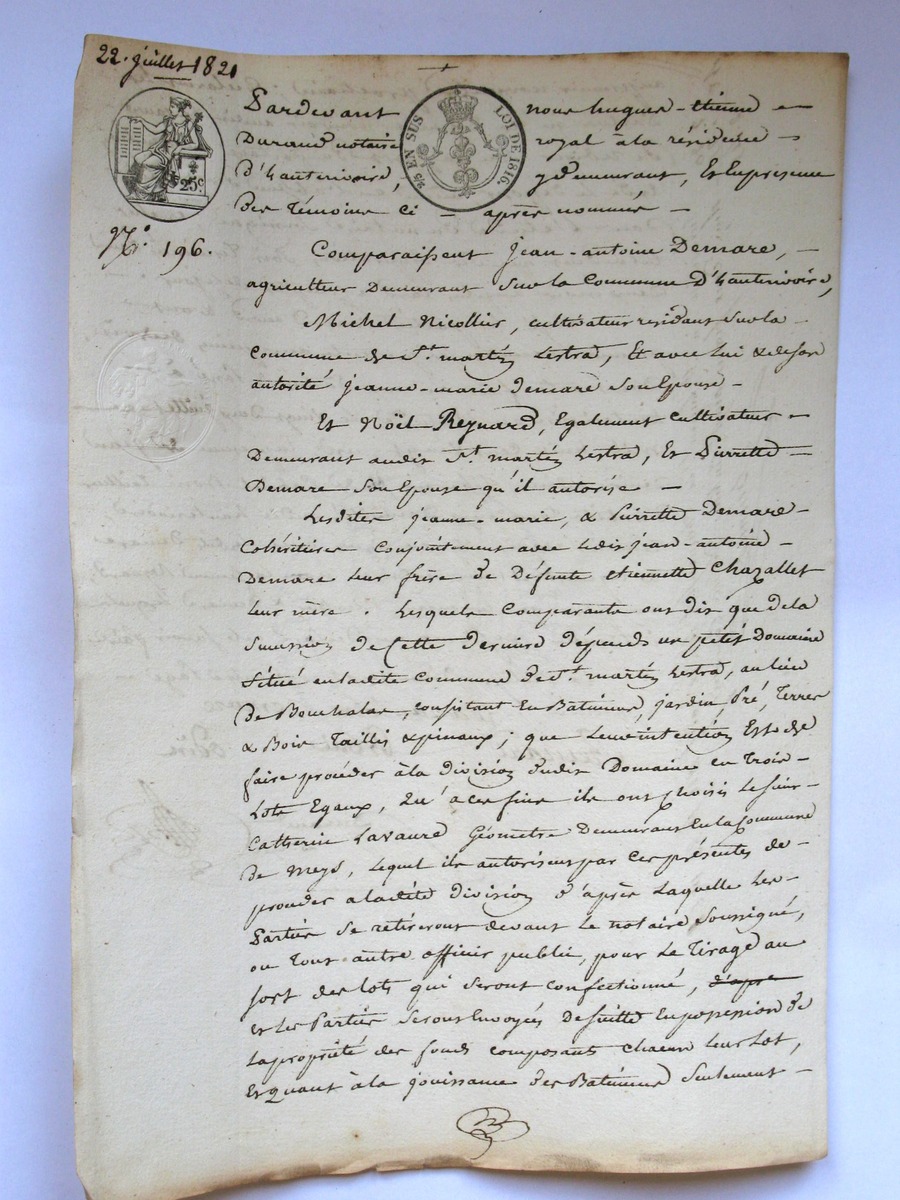 22. juillet 1821
2/5 EN SUS
LOI DE 1816.
25c
N.o 196.
Pardevant nous hugues-etienne
Durand notaire royal à la résidence
D'hauterivoire, y demeurant, Et En présence
Des Témoins Ci-après nommés
Comparaissent jean-antoine Demare,
agriculteur Demeurant Sur la Commune D'hauterivoire,
Michel Nicollier, cultivateur résidant Sur la
Commune de St. martin Lestra, Et avec Lui & de Son
autorité jeanne-marie demare Son Epouse
Et Nöel Reynard, Egalement cultivateur
Demeurant audit St. martin Lestra, Et Pierrette
Demare Son Epouse qu'il autorise
Lesdites jeanne-marie, & Pierrette Demare
Cohéritières Conjointement avec Ledit jean-antoine
Demare Leur frère de Défunte etiennette Chazallet
Leur mère. Lesquels Comparants ont dit que de la
Succession de Cette Dernière dépends un petit Domaine
Situé en ladite Commune de St. martin Lestra, au lieu
De Bouchalas, consistant En Batiments, jardin, Pré, Terres
& Bois Taillis & pinaux; que Leur intention Est de
faire procéder à la division dudit Domaine en Trois
Lots Egaux, Qu'à ces fins ils ont choisi Le Sieur
Catherin Lavaure Géomètre Demeurant En la Commune
De meys, Lequel ils autorisent par Ces présentes de
procéder a ladite division d'après Laquelle Les
Parties Se retireront devant Le notaire Soussigné,
ou Tout autre officier public, pour Le Tirage au
Sort des Lots qui Seront Confectionné, d'apre
Et Les Parties Seront Envoyées De Suitte En possession de
La propriété des fonds composants Chacun Leur Lot,
Et Quant à la jouissance des Batiments Seulement